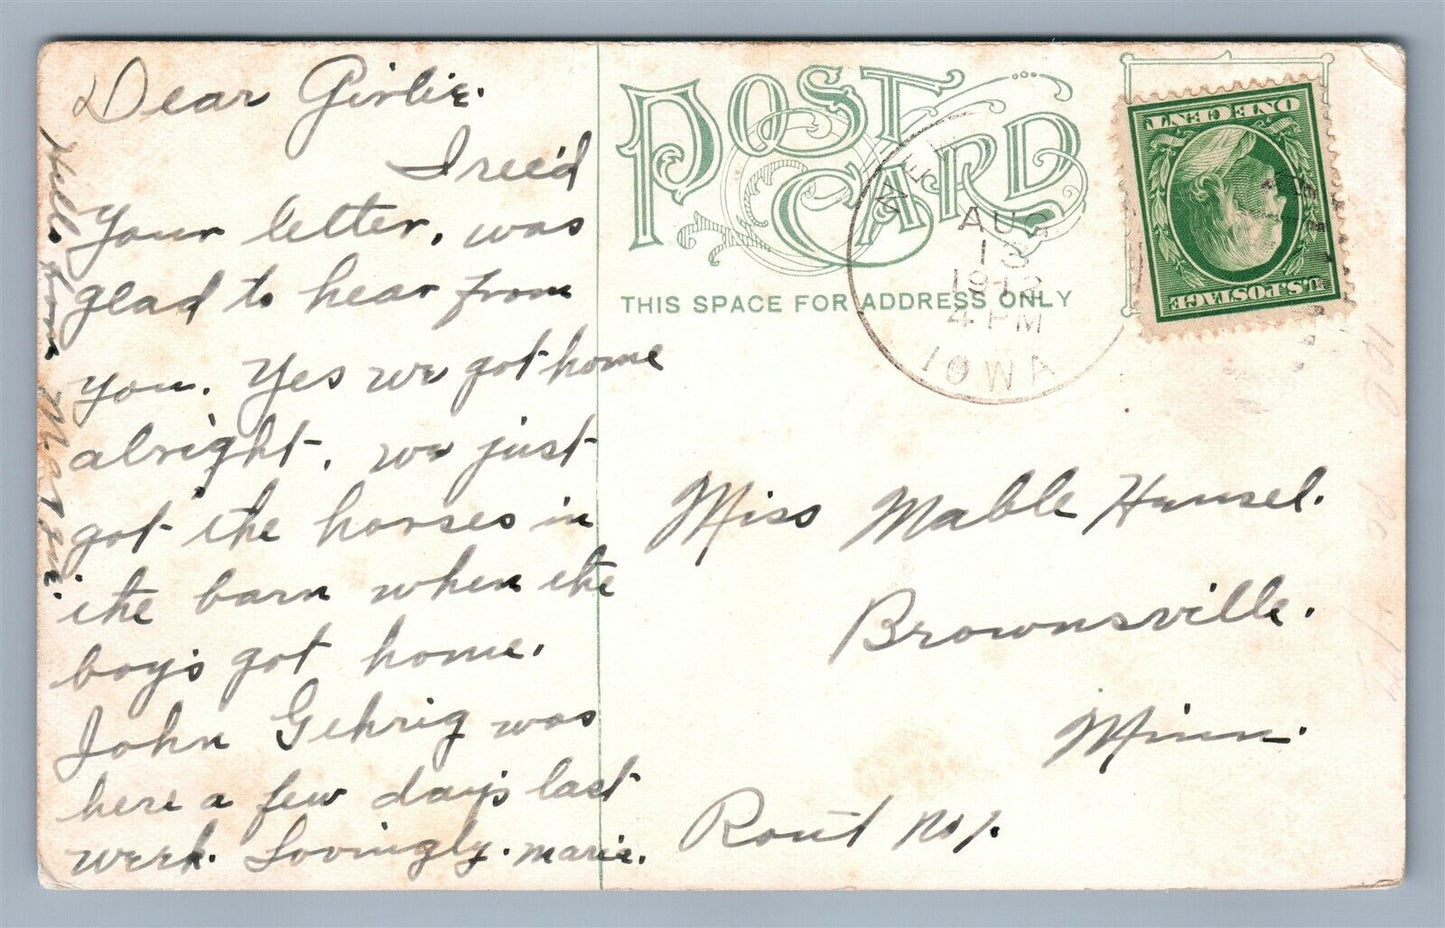 Dear Girlie.
I rec'd
your letter, was
glad to hear from
you. Yes we got home
alright, we just
got the horses in
the barn when the
boy's got home.
John Gehrig was
here a few day's last
week. Lovingly. Marie.
Hello from Martin.
POST
CARD
THIS SPACE FOR ADDRESS ONLY
NE
AUG
13
1912
4 PM
IOWA
ONE CENT
U.S. POSTAGE
Miss Mable Hansel.
Brownsville.
Minn.
Rout No 1.